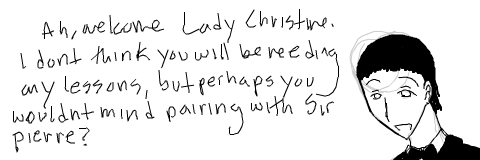 Ah, welcome Lady Christine.
I dont think you will be needing
any lessons, but perhaps you
wouldnt mind pairing with Sir
pierre?